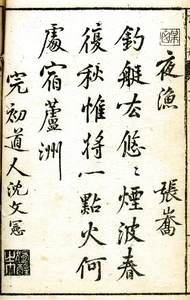 夜漁
張喬
釣艇去悠〻煙波春
復秋惟將一點火何
處宿蘆洲
完初道人沈文憲